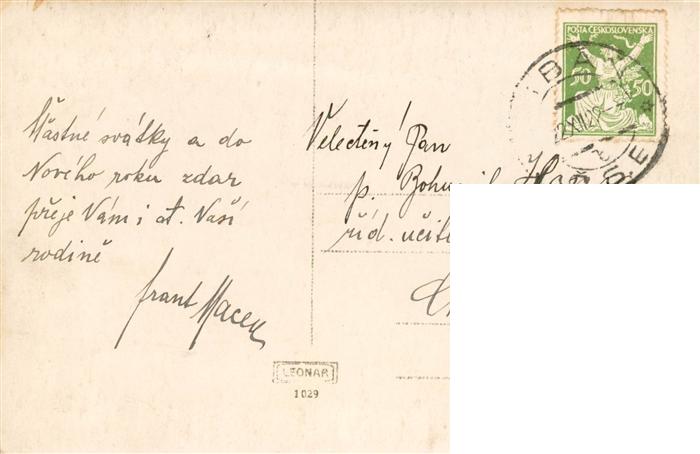 Šťastné svátky a do
Nového roku zdar
přeje Vám i ct. Vaší
rodině
Frant Macek
LEONAR
1029
Velectěný Pan
p.
říd. učit
POŠTA ČESKOSLOVENSKÁ
50 50